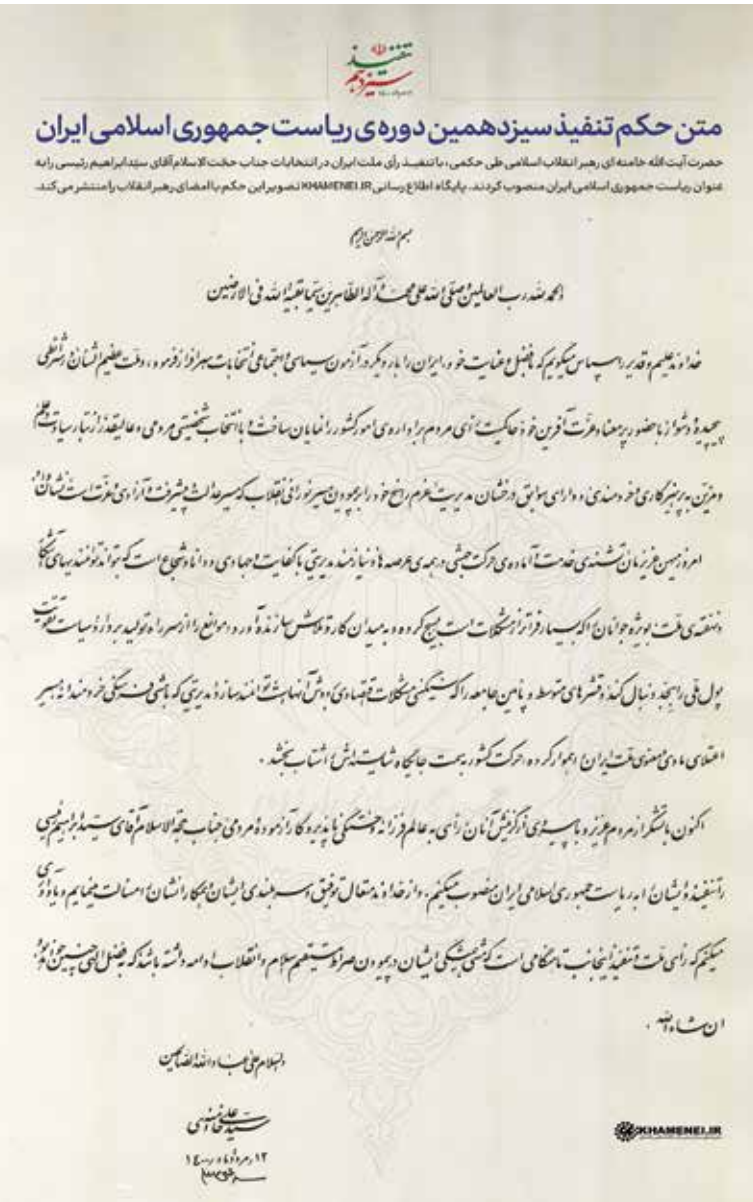 تنفیذ
سیزدهم
متن حکم تنفیذ سیزدهمین دوره‌ی ریاست جمهوری اسلامی ایران
حضرت آیت الله خامنه ای رهبر انقلاب اسلامی طی حکمی، با تنفیذ رأی ملت ایران در انتخابات جناب حجّت الاسلام آقای سیّد ابراهیم رئیسی را به
عنوان ریاست جمهوری اسلامی ایران منصوب کردند. پایگاه اطلاع رسانی KHAMENEI.IR تصویر این حکم با امضای رهبر انقلاب را منتشر می کند.
بسم الله الرحمن الرحیم
الحمد لله رب العالمین و صلّی الله علی محمّد و آله الطّاهرین سیّما بقیة الله فی الارضین
خداوند علیم و قدیر را سپاس میگویم که با فضل و عنایت خود، ایران را بار دیگر در آزمون سیاسی و اجتماعی انتخابات سرافراز فرمود، و ملّت عظیم الشّان در شرائطی
پیچیده و دشوار با حضور پرمعنا و عزّت آفرین خود حاکمیّت رأی مردم بر اداره‌ی امور کشور را نمایان ساخت و با انتخاب شخصیّتی مردمی و عالیقدر از تبار سیادت و علم
و مزیّن به پرهیزکاری و خردمندی، و دارای سوابق درخشان مدیریّت، عزم راسخ خود را بر پیمودن مسیر نورانی انقلاب که مسیر عدالت و پیشرفت و آزادی و عزّت است نشان داد
امروز میهن عزیزمان تشنه‌ی خدمت و آماده‌ی حرکت جهشی در همه‌ی عرصه ها و نیازمند مدیریّتی با کفایت و جهادی و دانا و شجاع است که بتواند توانمندیهای آشکار
و نهفته‌ی ملّت بویژه جوانان را که بسیار فراتر از مشکلات است بسیج کرده و به میدان کار و تلاش سازنده آورد و موانع را از سر راه تولید بردارد سیاست تقویت
پول ملّی را بجد دنبال کند و قشرهای متوسّط و پائین جامعه را که سنگینی مشکلات اقتصادی بر دوش آنها است توانمند سازد مدیریّتی که با مشی فرهنگی خردمندانه مسیر
اعتلای مادّی و معنوی ملّت ایران را هموار کرده، و حرکت کشور به سمت جایگاه شایسته اش را شتاب بخشد.
اکنون با تشکّر از مردم عزیز و با پیروی از گزینش آنان، رأی به عالم فرزانه و خستگی ناپذیر و کارآزموده و مردمی جناب حجّة الاسلام آقای سیّد ابراهیم رئیسی
را تنفیذ و ایشان را به ریاست جمهوری اسلامی ایران منصوب میکنم. و از خداوند متعال توفیق و سربلندی ایشان و همکارانشان را مسألت مینمایم و یادآوری
میکنم که رأی ملّت و تنفیذ اینجانب تا هنگامی است که مشی همیشگی ایشان در پیمودن صراط مستقیم اسلام و انقلاب ادامه داشته باشد که به فضل الهی چنین خواهد بود
ان شاءالله.
والسّلام علی عباد الله الصّالحین
سیّد علی خامنه‌ای
۱۲ مرداد ماه ۱۴۰۰
KHAMENEI.IR